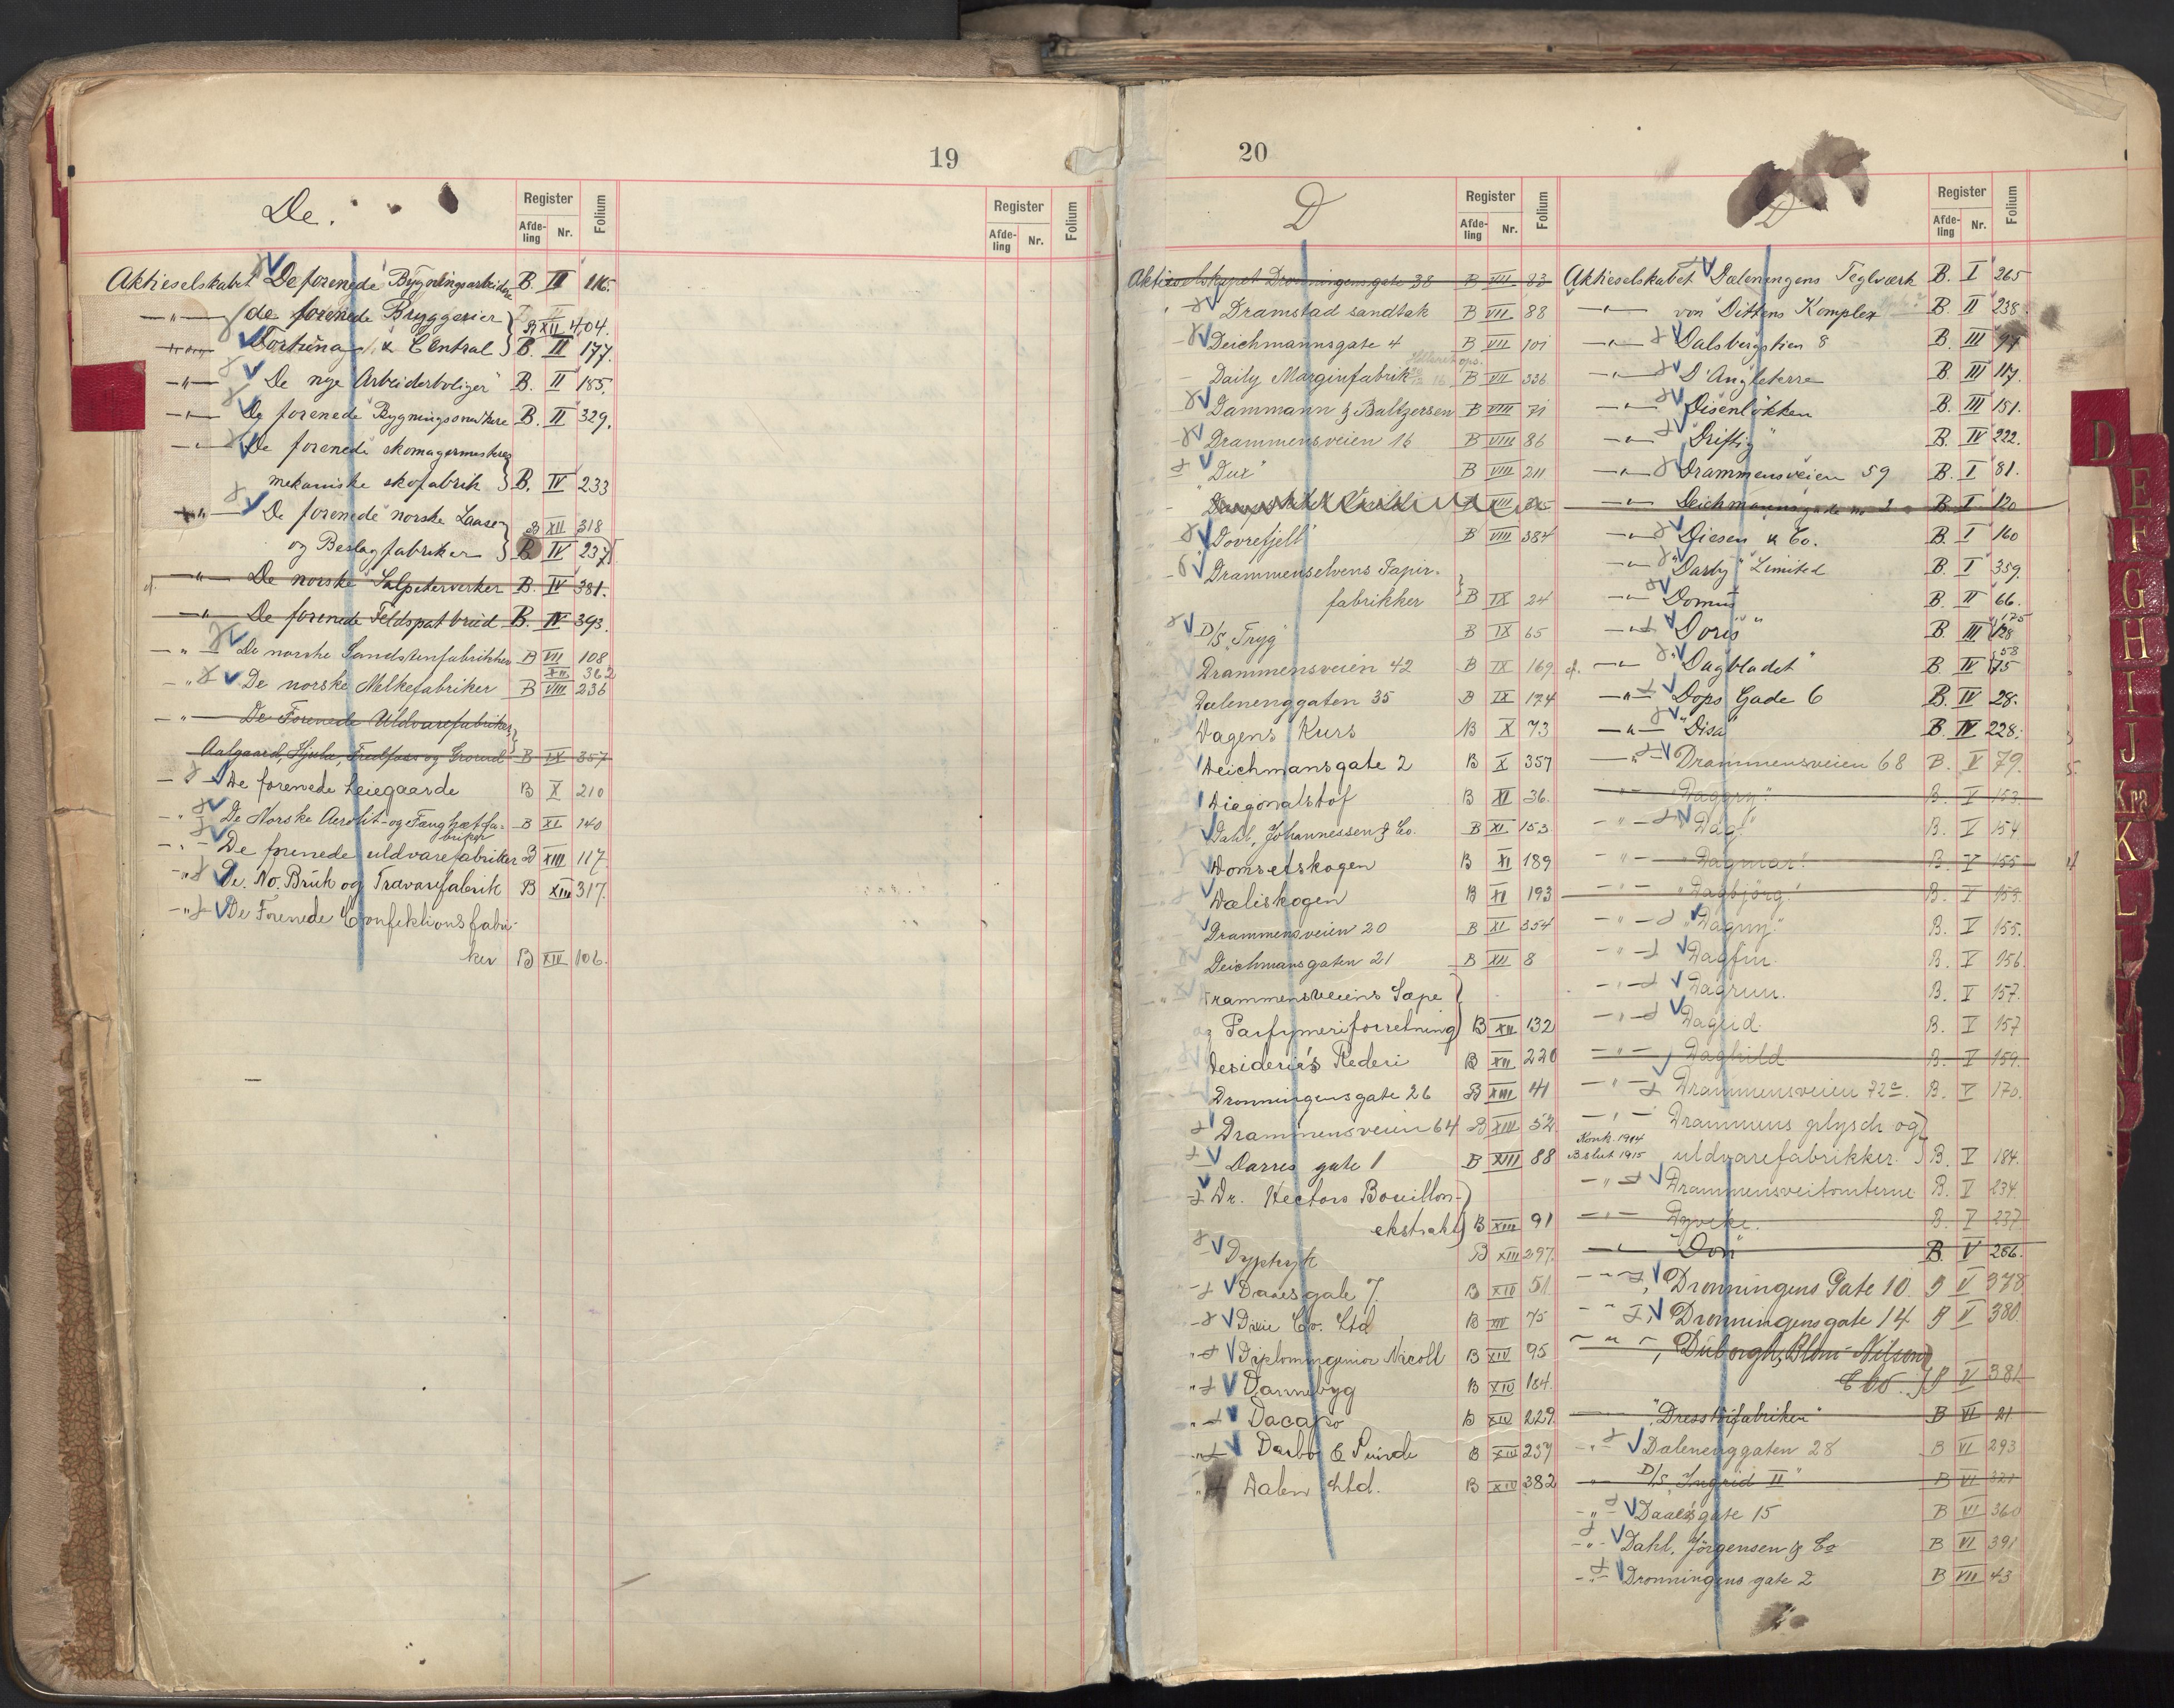 19
De.
Register
Afde-ling
Nr.
Folium
Register
Afde-ling
Nr.
Folium
Aktieselskabet De forenede Bygningsarbeidere B. II 116.
—"— de forenede Bryggerier B XII 404.
Fortuna & Central B. II 177
—"— De nye Arbeiderboliger B. II 185.
—"— De forenede Bygningssnedkere B. II 329.
—"— De forenede skomagermesteres
mekaniske skofabrik B. IV 233
—"— De forenede norske Laase- B XII 318
og Beslagfabriker B IV 237
—"— De norske Salpeterverker B. IV 381.
—"— De forenede Feldspatbrud B. IV 393.
—"— De norske Sandstenfabrikker B VII 108
XII 362
—"— De norske Melkefabriker B VIII 236
—"— De Forenede Uldvarefabriker,
Aalgaard, Hjula, Fredfoss og Grorud B IX 357
— De forenede Leiegaarde B X 210
—"— De Norske Aerolit- og Fænghætfa- B XI 140
briker
—"— De forenede uldvarefabrikker B XIII 117
—"— De No. Bruk og Trævarefabrik B XIII 317.
—"— De Forenede Confektionsfabri-
ker B XIV 106.
20
D
Register
Afde-ling
Nr.
Folium
Aktieselskapet Dronningensgate 38 B VII 83
Dramstad sandtak B VII 88
Deichmannsgate 4 B VII 101
Daily Marginfabrik B VII 336
Dammann & Baltzersen B VIII 71
Drammensveien 16 B VIII 86
"Dux" B VIII 211
Dovrefjell" B VIII 384
Drammenselvens Papir-
fabrikker B IX 24
D/S "Tryg" B IX 65
Drammensveien 42 B IX 169
Dælenenggaten 35 B IX 174
Dagens Kurs B X 73
Deichmansgate 2 B X 357
Diagonalstof B XI 36.
Dahl, Johannessen & Co. B XI 153
Domsetskogen B XI 189
Dæliskogen B XI 193
Drammensveien 20 B XI 354
Deichmansgaten 21 B XII 8
Drammensveiens Sæpe
og Parfymeriforretning B XII 132
Desideria's Rederi B XII 220
Dronningensgate 26 B XIII 41
Drammensveien 64 B XIII 52
Darres gate 1 B XIII 88
Dr. Hectors Bouillon-
ekstrakt B XIII 91
Dyptryk B XIII 297.
Daaesgate 7. B XIV 51
Dixie Co. Ltd B XIV 75
Diplomingeniør Nicoll B XIV 95
Dannebyg B XIV 184.
Dacapo B XIV 229.
Darbo & Sunde B XIV 237
Dalen Ltd. B XIV 382
D
Register
Afde-ling
Nr.
Folium
Aktieselskabet Dælenengens Teglværk B. I 265
—"— von Dittens Komplex B. II 238
—"— Dalsbergstien 8 B. III 97
—"— D'Angleterre B. III 117.
—"— Disenløkken B. III 151.
—"— "Driftig" B. IV 222.
—"— Drammensveien 59 B. I 81.
—"— Deichmannsgade no 2 B. I 120
—"— Diesen & Co. B. I 160
—"— "Darby" Limited B. I 359.
—"— Domus B. II 66.
—"— "Doris" B. III 128 175
—"— "Dagbladet" B. IV 75 58
—"— Dops Gade 6 B. IV 28.
—"— "Disa" B. IV 228.
—"— Drammensveien 68 B. V 79.
—"— "Daggry" B. V 153.
—"— "Dag" B. V 154
—"— "Dagmar" B. V 155
—"— "Dagbjørg" B. V 153.
—"— "Dagny" B. V 155.
—"— Dagfin. B. V 156.
—"— Dagrun. B. V 157.
—"— Dagrid. B. V 157
—"— Daghild B. V 159.
—"— Drammensveien 72c. B. V 170.
—"— Drammens plysch og
Konk. 1914
B slut 1915
uldvarefabrikker. B. V 184.
—"— Drammensveitomterne B. V 234.
—"— Dyveke. B. V 237
—"— "Don" B. V 266.
Dronningens Gate 10. B V 378
Dronningensgate 14 B V 380.
—"— Duborgh, Blom-Nilsen
& Co. B V 381
"Dresstøifabriken" B VI 21
—"— Dælenenggaten 28 B VI 293
—"— D/S "Ingrid II" B VI 321
—"— Daaes gate 15 B VI 360
—"— Dahl, Jörgensen & Co B VI 391
—"— Dronningens gate 2 B VII 43
D
E
F
G
H
I
J
K
L